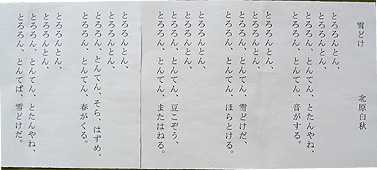 雪どけ
北原白秋
とろろんとん、
とろろんとん、
とろろん、とんてん、とたんやね、
とろろん、とんてん、音がする。
とろろんとん、
とろろんとん、
とろろん、とんてん、雪どけだ、
とろろん、とんてん、ほらとける。
とろろんとん、
とろろんとん、
とろろん、とんてん、豆こぞう、
とろろん、とんてん、またはねる。
とろろんとん、
とろろんとん、
とろろん、とんてん、そら、はずめ、
とろろん、とんてん、春がくる。
とろろんとん、
とろろんとん、
とろろん、とんてん、とたんやね、
とろろん、とんてば、雪どけだ。